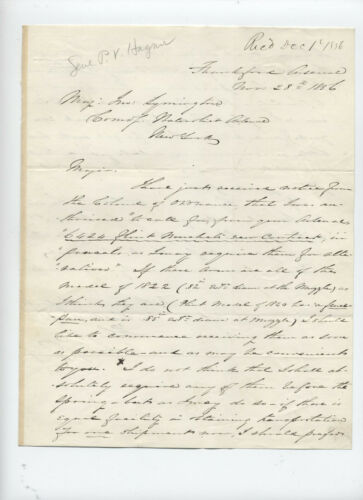 Genl P. V. Hagner
Rec'd Dec 1st 1856
Frankford Arsenal
Nov. 28th 1856
Maj. Jno. Symington
Comdg Watervliet Arsenal
New York
Major.
I have just received notice from
the Colonel of Ordnance that I am au-
thorised to call for, from your Arsenal
"6424 Flint Muskets new Contract, in
"parcels as I may require them for alte-
"rations". If these arms are all of the
Model of 1822 as
I think they are (that Model of 1840 has a
and is at Muzzle) I should
like to commence receiving them as soon
as possible and as may be convenient
to you. I do not think that I shall ab-
solutely require any of them before the
Spring - but as I may do so - if there is
equal facility in obtaining transportation
for one shipment now, I should prefer